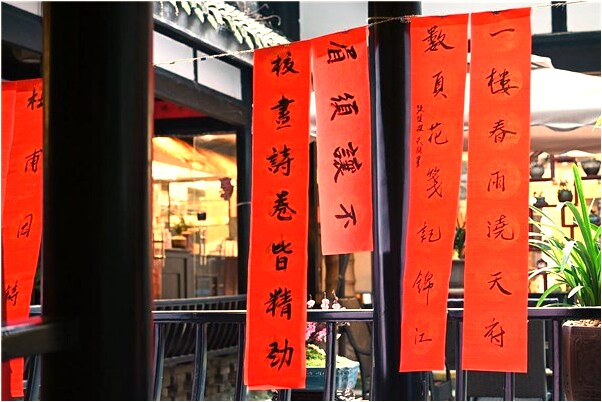 一楼春雨澆天府
數頁花箋記錦江
眉須讓不
校畫詩卷皆精勁
杜甫